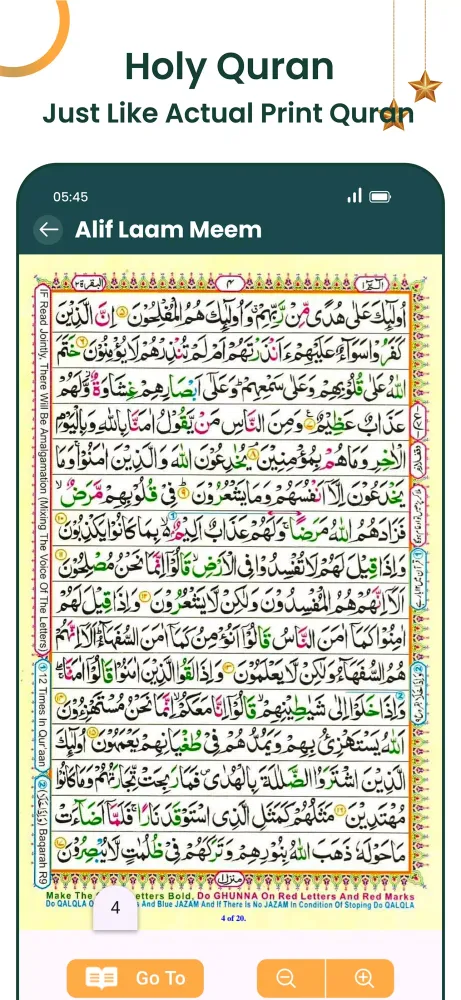 Holy Quran
Just Like Actual Print Quran
05:45
Alif Laam Meem
البقرة ٢
٤
الٓمّٓ ١
اُولٰٓئِكَ عَلٰى هُدًى مِّنْ رَّبِّهِمْ وَاُولٰٓئِكَ هُمُ الْمُفْلِحُوْنَ ۵ اِنَّ الَّذِيْنَ
كَفَرُوْا سَوَآءٌ عَلَيْهِمْ ءَاَنْذَرْتَهُمْ اَمْ لَمْ تُنْذِرْهُمْ لَا يُؤْمِنُوْنَ ۶ خَتَمَ
اللّٰهُ عَلٰى قُلُوْبِهِمْ وَعَلٰى سَمْعِهِمْ وَعَلٰٓى اَبْصَارِهِمْ غِشَاوَةٌ وَّلَهُمْ
عَذَابٌ عَظِيْمٌ ۷ وَمِنَ النَّاسِ مَنْ يَّقُوْلُ اٰمَنَّا بِاللّٰهِ وَبِالْيَوْمِ
الْاٰخِرِ وَمَا هُمْ بِمُؤْمِنِيْنَ ۸ يُخٰدِعُوْنَ اللّٰهَ وَالَّذِيْنَ اٰمَنُوْا وَمَا
يَخْدَعُوْنَ اِلَّآ اَنْفُسَهُمْ وَمَا يَشْعُرُوْنَ ۹ فِيْ قُلُوْبِهِمْ مَّرَضٌ
فَزَادَهُمُ اللّٰهُ مَرَضًا وَلَهُمْ عَذَابٌ اَلِيْمٌ بِمَا كَانُوْا يَكْذِبُوْنَ ۱۰
وَاِذَا قِيْلَ لَهُمْ لَا تُفْسِدُوْا فِى الْاَرْضِ قَالُوْٓا اِنَّمَا نَحْنُ مُصْلِحُوْنَ ۱۱
اَلَآ اِنَّهُمْ هُمُ الْمُفْسِدُوْنَ وَلٰكِنْ لَّا يَشْعُرُوْنَ ۱۲ وَاِذَا قِيْلَ لَهُمْ
اٰمِنُوْا كَمَآ اٰمَنَ النَّاسُ قَالُوْٓا اَنُؤْمِنُ كَمَآ اٰمَنَ السُّفَهَآءُ اَلَآ اِنَّهُمْ
هُمُ السُّفَهَآءُ وَلٰكِنْ لَّا يَعْلَمُوْنَ ۱۳ وَاِذَا لَقُوا الَّذِيْنَ اٰمَنُوْا قَالُوْٓا اٰمَنَّا
وَاِذَا خَلَوْا اِلٰى شَيٰطِيْنِهِمْ قَالُوْٓا اِنَّا مَعَكُمْ اِنَّمَا نَحْنُ مُسْتَهْزِءُوْنَ ۱۴
اَللّٰهُ يَسْتَهْزِئُ بِهِمْ وَيَمُدُّهُمْ فِيْ طُغْيَانِهِمْ يَعْمَهُوْنَ ۱۵ اُولٰٓئِكَ
الَّذِيْنَ اشْتَرَوُا الضَّلٰلَةَ بِالْهُدٰى فَمَا رَبِحَتْ تِّجَارَتُهُمْ وَمَا كَانُوْا
مُهْتَدِيْنَ ۱۶ مَثَلُهُمْ كَمَثَلِ الَّذِى اسْتَوْقَدَ نَارًا فَلَمَّآ اَضَآءَتْ
مَا حَوْلَهٗ ذَهَبَ اللّٰهُ بِنُوْرِهِمْ وَتَرَكَهُمْ فِيْ ظُلُمٰتٍ لَّا يُبْصِرُوْنَ ۱۷
منزل ١
IF Read Jointly, There Will Be Amalgamation (Mixing The Voice Of The Letters)
① 12 Times In Qur'aan
② Baqarah R9
Make The etters Bold, Do GHUNNA On Red Letters And Red Marks
Do QALQLA And Blue JAZAM And If There Is No JAZAM In Condition Of Stoping Do QALQLA
4
4 of 20.
Go To